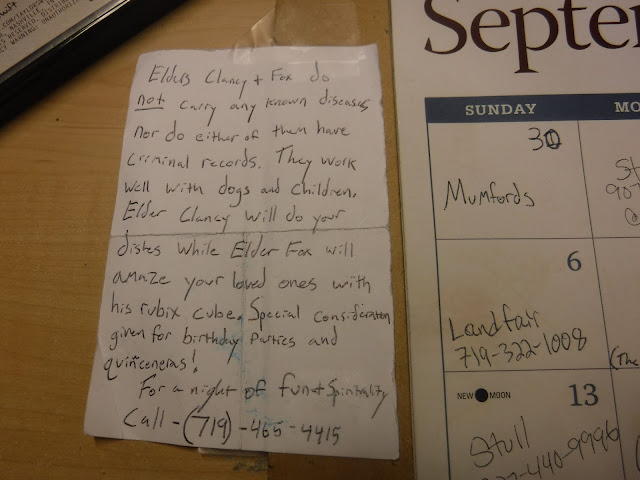 NASHVILLE
Elders Clancy + Fox do
not carry any known diseases
nor do either of them have
criminal records. They work
well with dogs and children.
Elder Clancy will do your
dishes while Elder Fox will
amaze your loved ones with
his rubix cube. Special consideration
given for birthday parties and
quiñceneras!
For a night of fun + Spirituality
Call - (719) - 465 - 4415
Septem
SUNDAY
MO
30
Mumfords
St
90-
6
Landfair
719-322-1008
(The
NEW MOON
13
Stull
440-9996